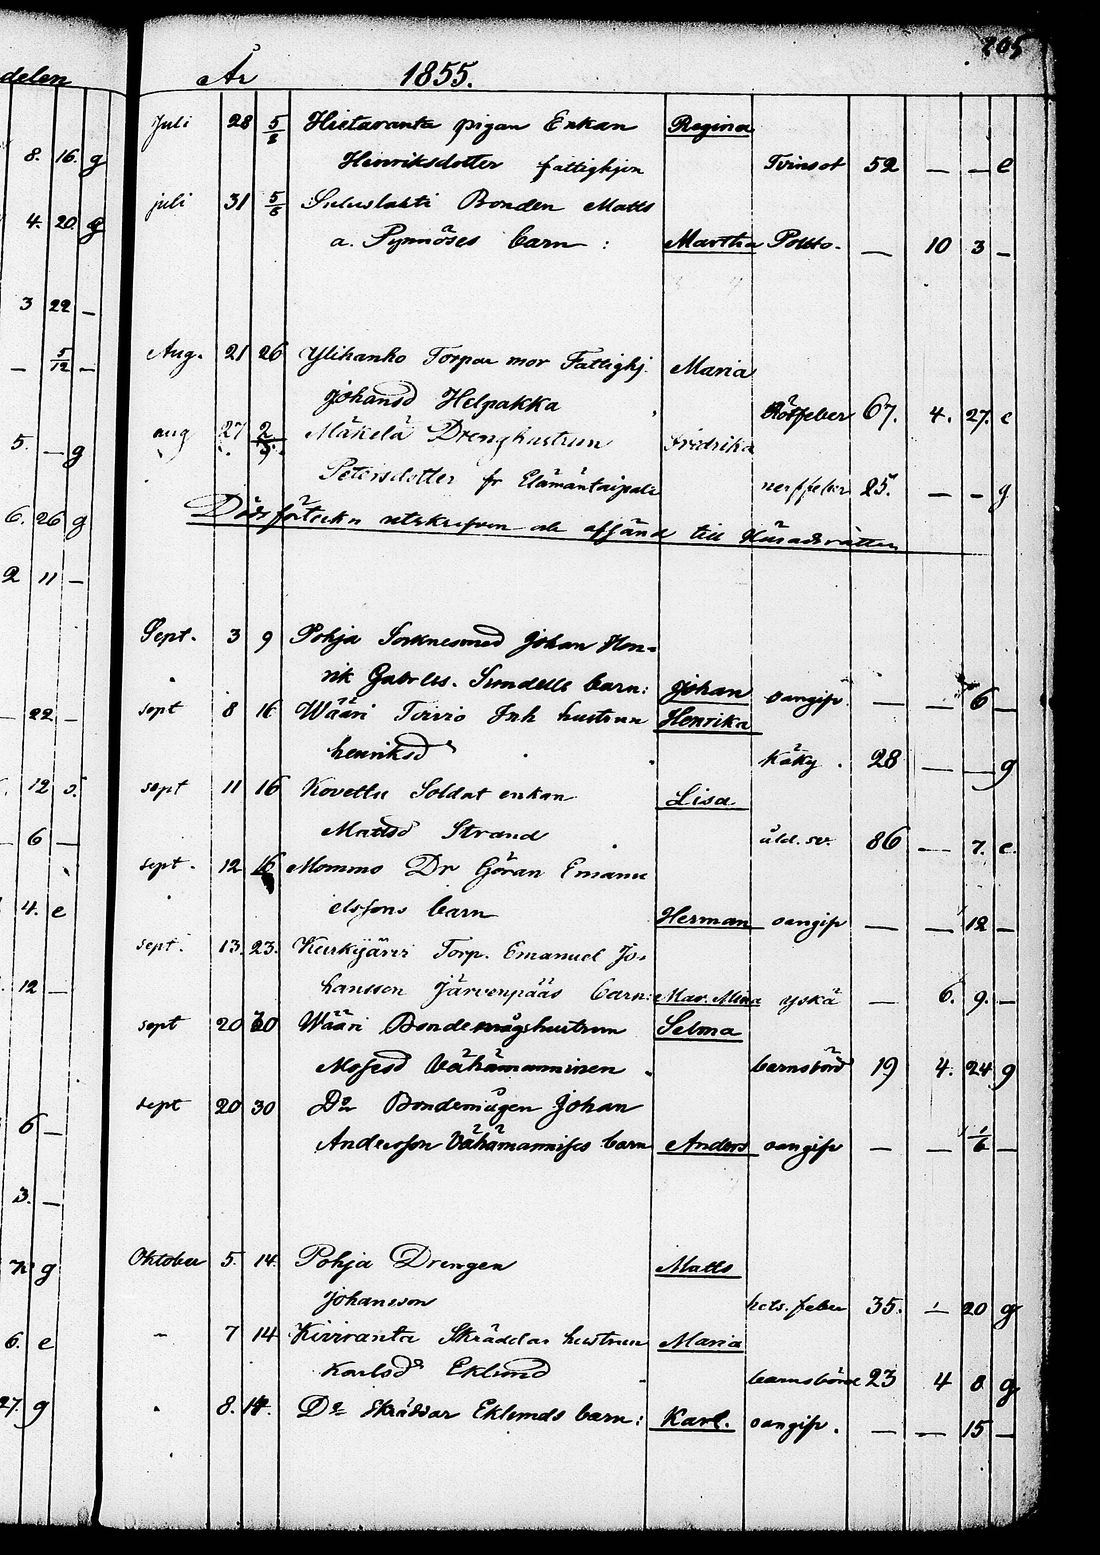 205
delen
År 1855.
Juli 28 5/8 Hietaranta pigan Enkan Regina
8. 16. g Henriksdotter fattighjon Tvinsot 52 — — e
juli 31 5/8 Bonden Matts
4. 20. g a. Pynnöses barn : Martha — 10 3 —
3 22 —
Aug. 21 26 Ylihanko Torpar mor Fattighj. Maria
— 5/12 —
Johansd Helpakka Rötfeber 67. 4. 27. e
aug 27 2/9 Mäkelä Drenghustrun Fredrika
5. — g
Petersdotter fr Elämäntaipale nerffeber 25. — — g
6. 26 g
Dödsförteckn utskrifven ok afsänd till Häradsrätten
2 11 —
Sept. 3 9 Pohja Socknesmed Johan Hen-
rik Gabrlss. Sundells barn: Johan oangift — — 6 —
— 22 — sept 8 16 Wääri Tervo Inh hustrun Henrika
henriksd Käky . 28 — — g
12 5. sept 11 16 Kovettu Soldat enkan Lisa
6 — Mattsd Strand åld. sv. 86 — 7. e.
sept. 12 16 Mommo Dr Göran Emanu
4. e elssons barn Herman oangift — — 12 —
sept. 13. 23. Kurkijärvi Torp. Emanuel Jo-
12 — hansson Järvenpääs barn: Mar. Mina — 6. 9. —
sept 20 30 Wääri Bondemågshustrun Selma
Mosesd Vähämanninen barnsbörd 19 4. 24 g
sept 20 30 Do Bondemågen Johan
6 —
Andersson Vähämannises barn Anders oangift — — 1/6 —
3. —
Oktober 5. 14. Pohja Drengen Matts
g
Johansson hets. feber 35. — 20 g
6. e — 7 14 Kiviranta Skräddar hustrun Maria
Karlsd Eklund barnsbörd 23 4 8 g
27. g 8. 14. Do Skräddar Eklunds barn: Karl. oangift. — — 15 —